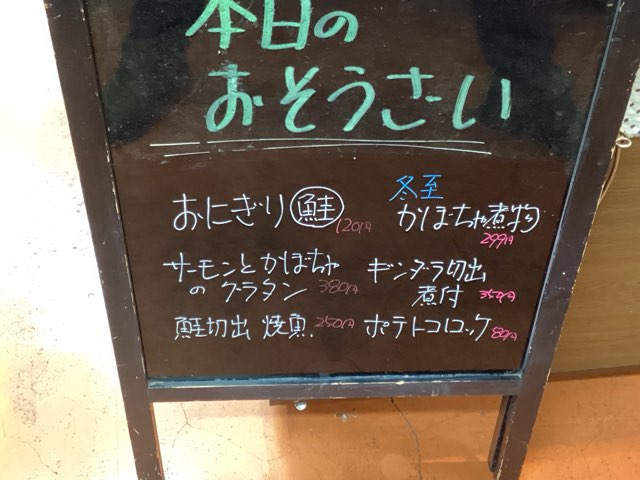 本日の
おそうさい
おにぎり 鮭 120円
サーモンとかぼちゃ
のグラタン 380円
鮭切出 焼魚 250円
冬至
かぼちゃ煮物
299円
ギンダラ切出
煮付 350円
ポテトコロッケ 80円